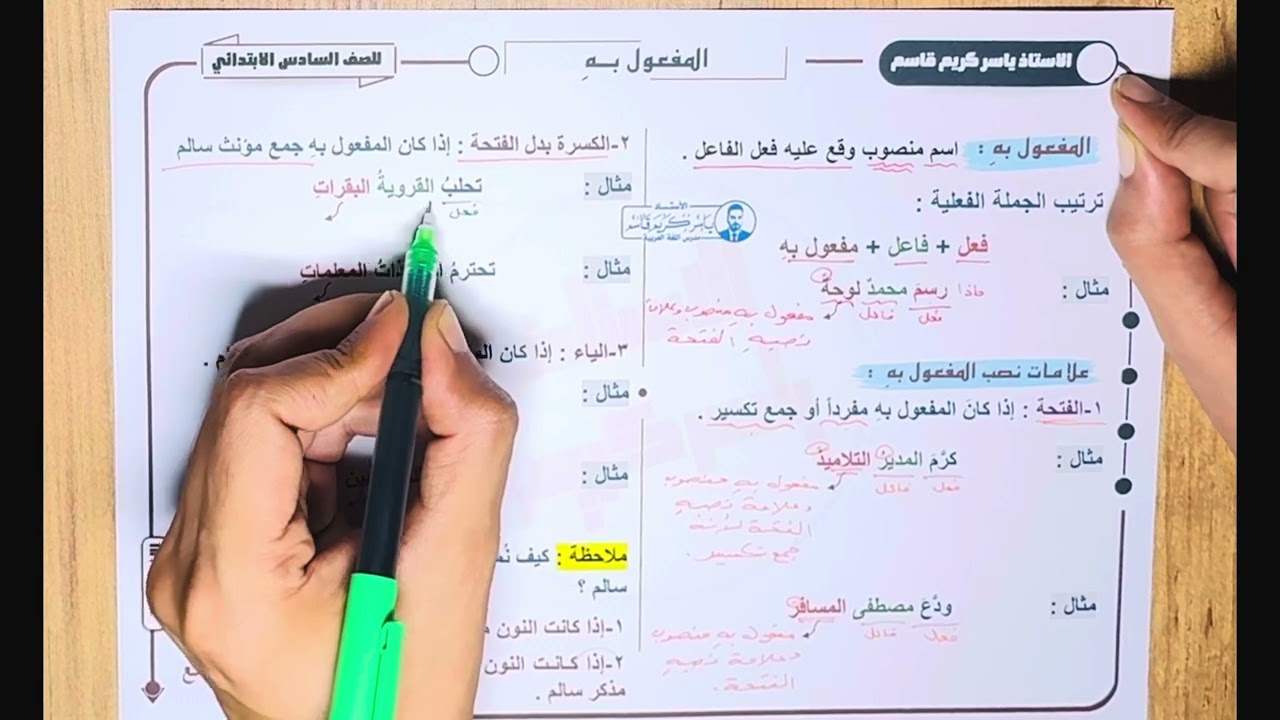 الاستاذ ياسر كريم قاسم
المفعول بهِ
للصف السادس الابتدائي
المفعول بهِ : اسم منصوب وقع عليه فعل الفاعل .
ترتيب الجملة الفعلية :
فعل + فاعل + مفعول بهِ
مثال : ماذا رسمَ محمدٌ لوحةً
فعل فاعل مفعول بهِ منصوب وعلامة
نصبهِ الفتحة
علامات نصب المفعول بهِ :
١-الفتحة : إذا كانَ المفعول بهِ مفرداً أو جمع تكسير .
مثال : كرَّمَ المديرُ التلاميذَ
فعل فاعل مفعول بهِ منصوب
وعلامة نصبهِ
الفتحة لأنهُ
جمع تكسير .
مثال : ودَّعَ مصطفى المسافرَ
فعل فاعل مفعول بهِ منصوب
وعلامة نصبهِ
الفتحة .
الأستاذ
ياسر كريم قاسم
مدرس اللغة العربية
٢-الكسرة بدل الفتحة : إذا كان المفعول بهِ جمع مؤنث سالم
مثال : تحلبُ القرويةُ البقراتِ
فعل
مثال : تحترمُ المعلماتِ
٣-الياء : إذا كان
مثال :
مثال :
ملاحظة : كيف
سالم ؟
١-إذا كانت النون
٢-إذا كانت النون
مذكر سالم .